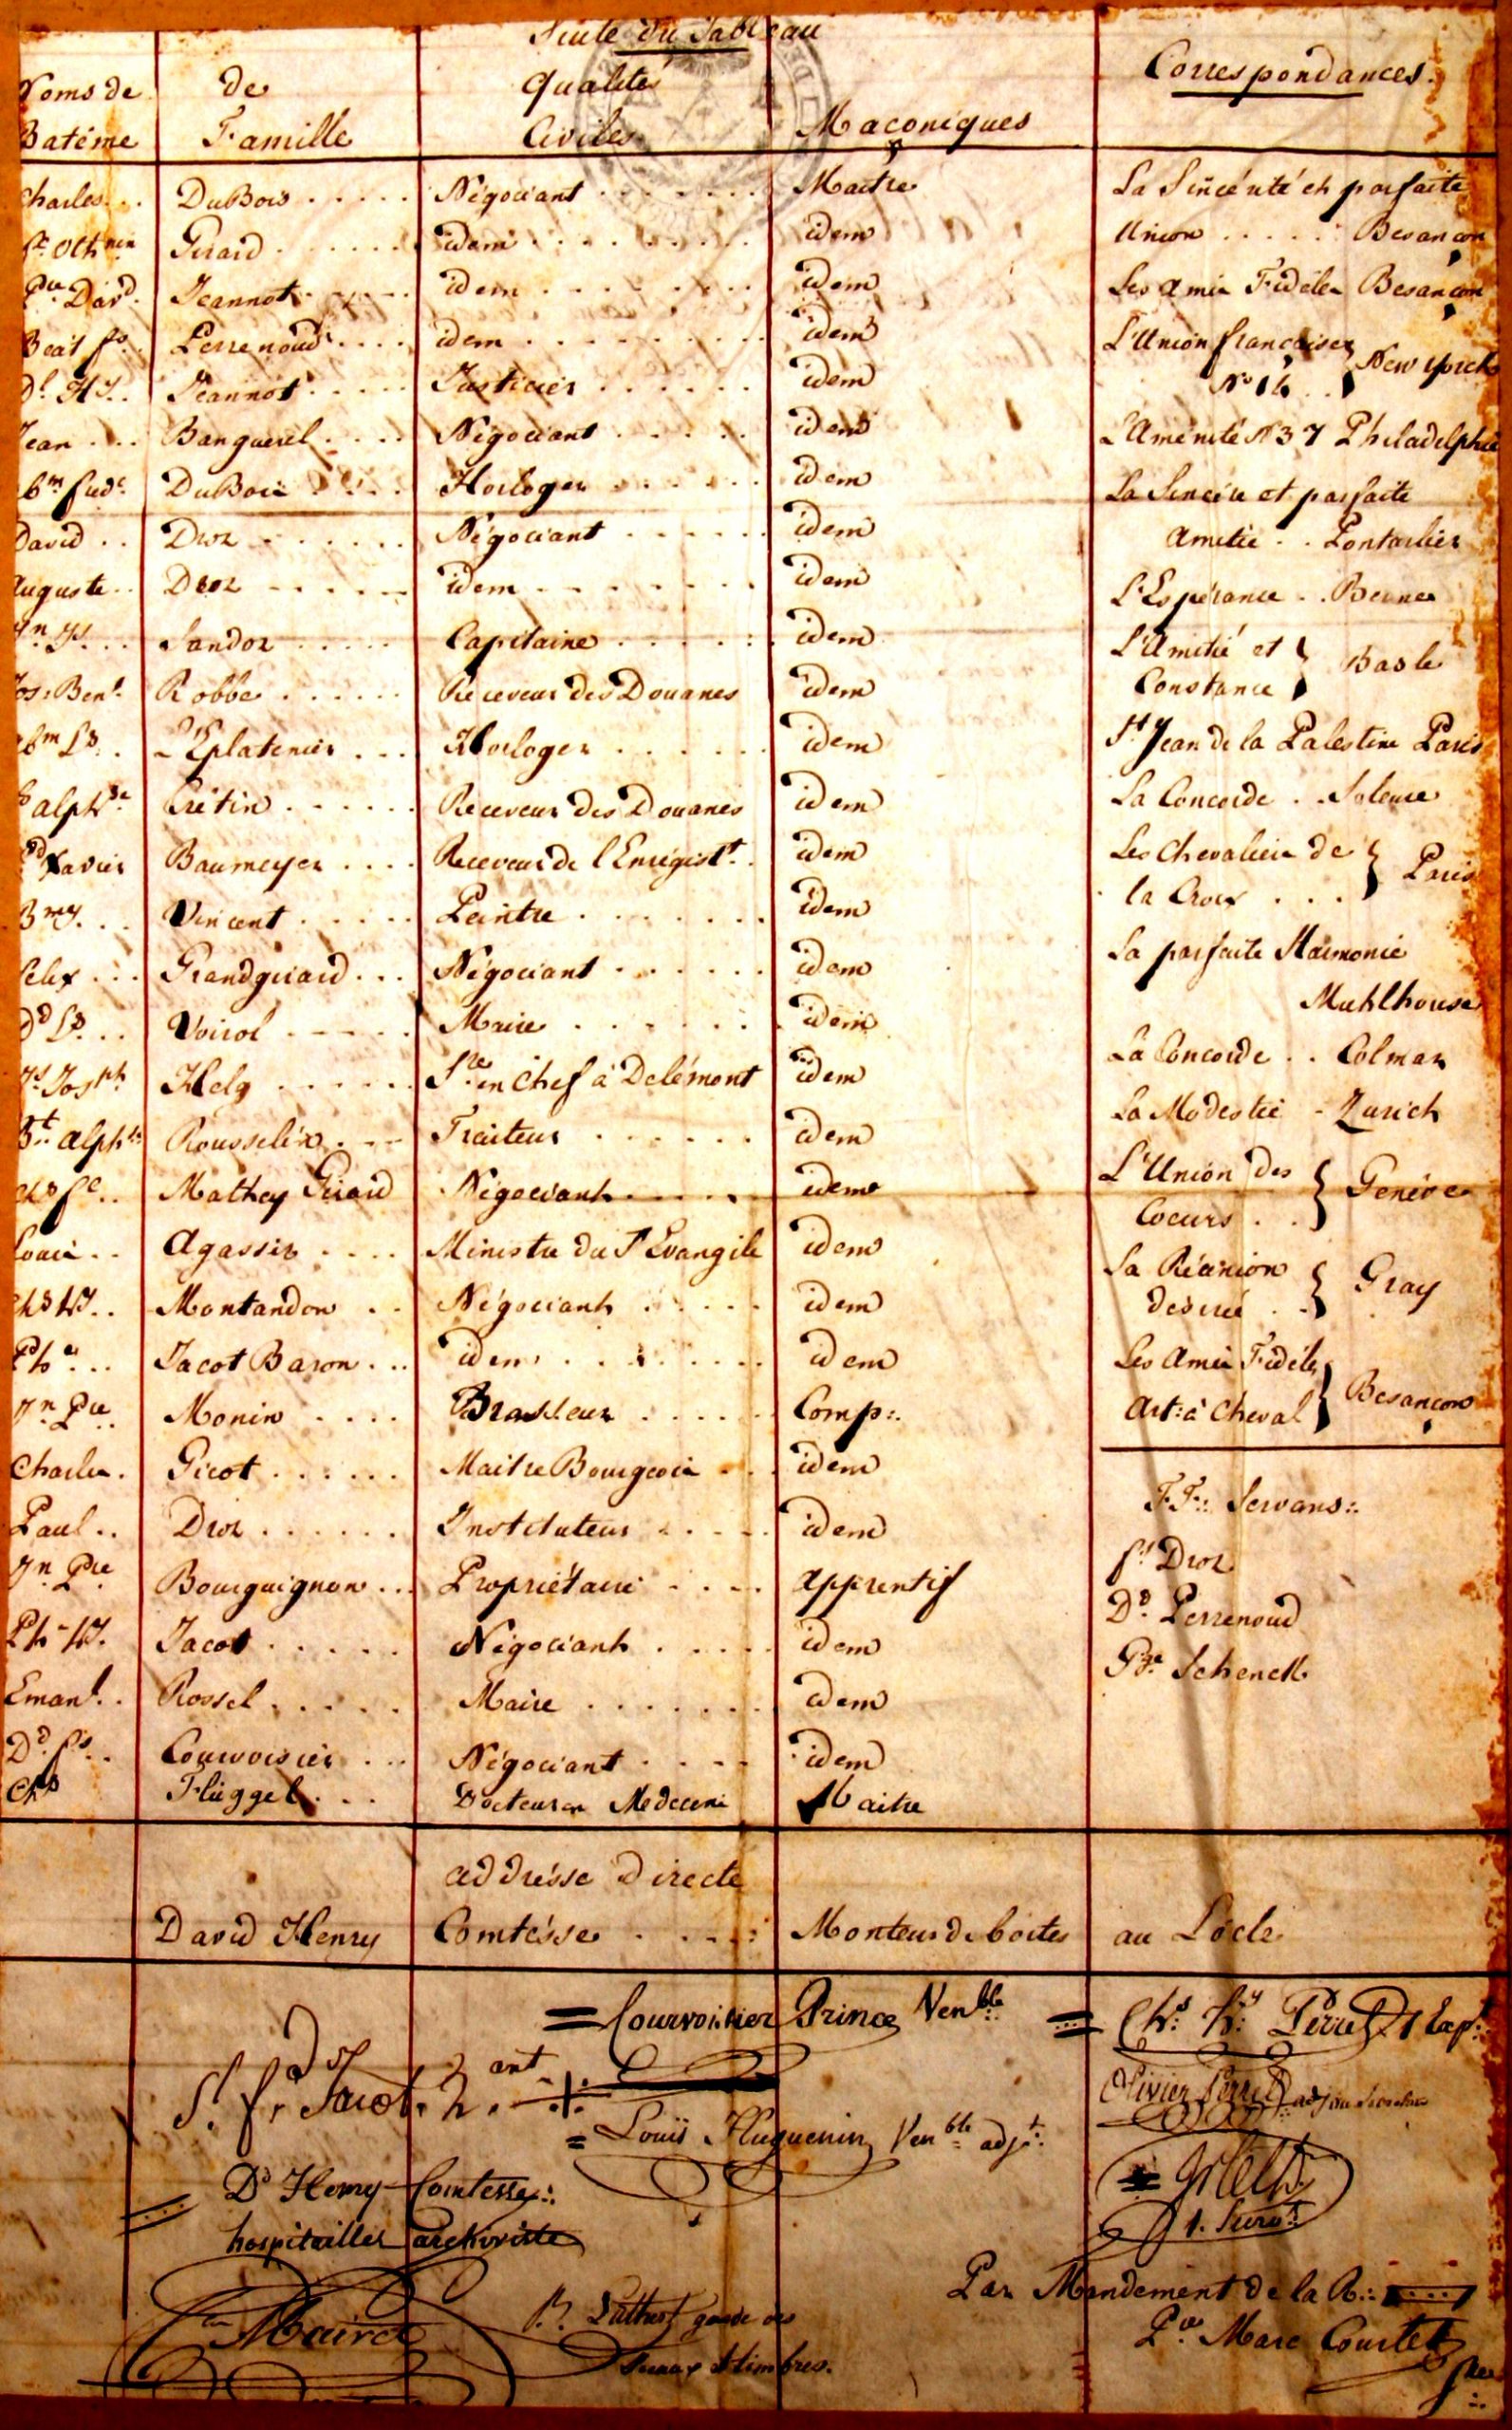 Suite du Tableau
Noms de Batême | de Famille | Qualités Civiles | Maçoniques | Correspondances.
Charles . . | DuBois . . . . . | Négociant . . . . . . . | Maitre | La Sincérité et parfaite
Girard . . . . . . | idem . . . . . . . . . | idem | Union . . . . . Besançon
Pre Davd. | Jeannot . . . . . | idem . . . . . . . . | idem | Les Amis Fidéles Besançon
Béat fs. | Perrenoud . . . . | idem . . . . . . . . . | idem | L'Union françaises } New Yorck
Dl. Hy. . | Jeannot . . . . . | Justicier . . . . . . | idem | No 14 . .
Jean . . . | Banguerel . . . . | Négociant . . . . . | idem | L'Aménité N 37 Philadelphie
bm fredc. | DuBois . . . . | Horloger . . . . . . | idem | La Sincère et parfaite
David . . | Droz . . . . . . | Négociant . . . . . . | idem | Amitié . . Pontarlier
Auguste . . | Droz - - - - - | idem . . . . . . . . | idem | L'Espérance . . Berne
Jn. Js. . . | Sandoz . . . . . | Capitaine . . . . . | idem | L'Amitié et } Basle
Jos: Bent. | Robbe . . . . . . | Receveur des Douanes | idem | Constance
bm Ls. . | L'Eplatenier . . . | Horloger . . . . . . | idem | St Jean de la Palestine Paris
alphse | Crétin . . . . . . | Receveur des Douanes | idem | La Concorde . . Soleure
Xavier | Baumeyer . . . . | Receveur de l'Enrégistt. . | idem | Les Chevaliers de } Paris
Bmy. . . | Vincent . . . . . | Peintre . . . . . . . | idem | la Croix . . .
Felix . . . | Grandgirard . . . | Négociant . . . . . . | idem | La parfaite Harmonie
Dd Ls. . . | Voirol - - - - . | Maire . . . . . . | idem | Muhlhouse
Js Josph | Helg . . . . . . | Sre en Chef à Delémont | idem | La Concorde . . Colmar
Bt. alphse | Rousselin . - - | Traiteur . . . . . . | idem | La Modestie - Zurich
Chs fc. . | Mathey Girard | Négociant . . . . . | idem | L'Union des } Genève
Louis . . | Agassis . . . . | Ministre du St Evangile | idem | Coeurs . .
Chs Hy. . | Montandon . . | Négociant . . . . . | idem | La Réunion } Gray
Phe. . . | Jacot Baron . . . | idem . . . . . . . . | idem | desirée . .
Jn. Pre | Monin . . . . | Brasseur . . . . . | Comp:. | Les Amis Fidéles } Besançon
Charles . | Girot . . . . . . | Maitre Bourgeois . . | idem | Art: à Cheval
Paul . . | Droz . . . . . . | Instituteur . . . . . | idem | F.F.: Servans:.
Jn. Pre. | Bourguignon . . . | Propriétaire - - - . | Apprentif | fs Droz
Ph-Hy. | Jacot . . . . . | Négociant . . . . . | idem | Dd. Perrenoud
Emanl. . | Rossel . . . . . | Maire . . . . . . . | idem | Schenck
Dd. fs. . | Courvoisier . . . | Négociant . . . . | idem
Chs | Flüggel . . . | Docteur en Medecine | Maitre
addrésse directe
David Henry | Comtésse . . . . : | Monteur de boites | au Locle
= Courvoisier Prince Venble = Chs: Hy: Perret 1 Sap:
Olivier Perret adjoint Secretaire
= Louis Huguenin Venble adjt:
Dd Henry Comtesse:.
1. Survt
hospitaillier archiviste
Par Mandement de la R:.
Mairet
garde des
Pre Marc Courtet
Sceaux et timbres.
Sre